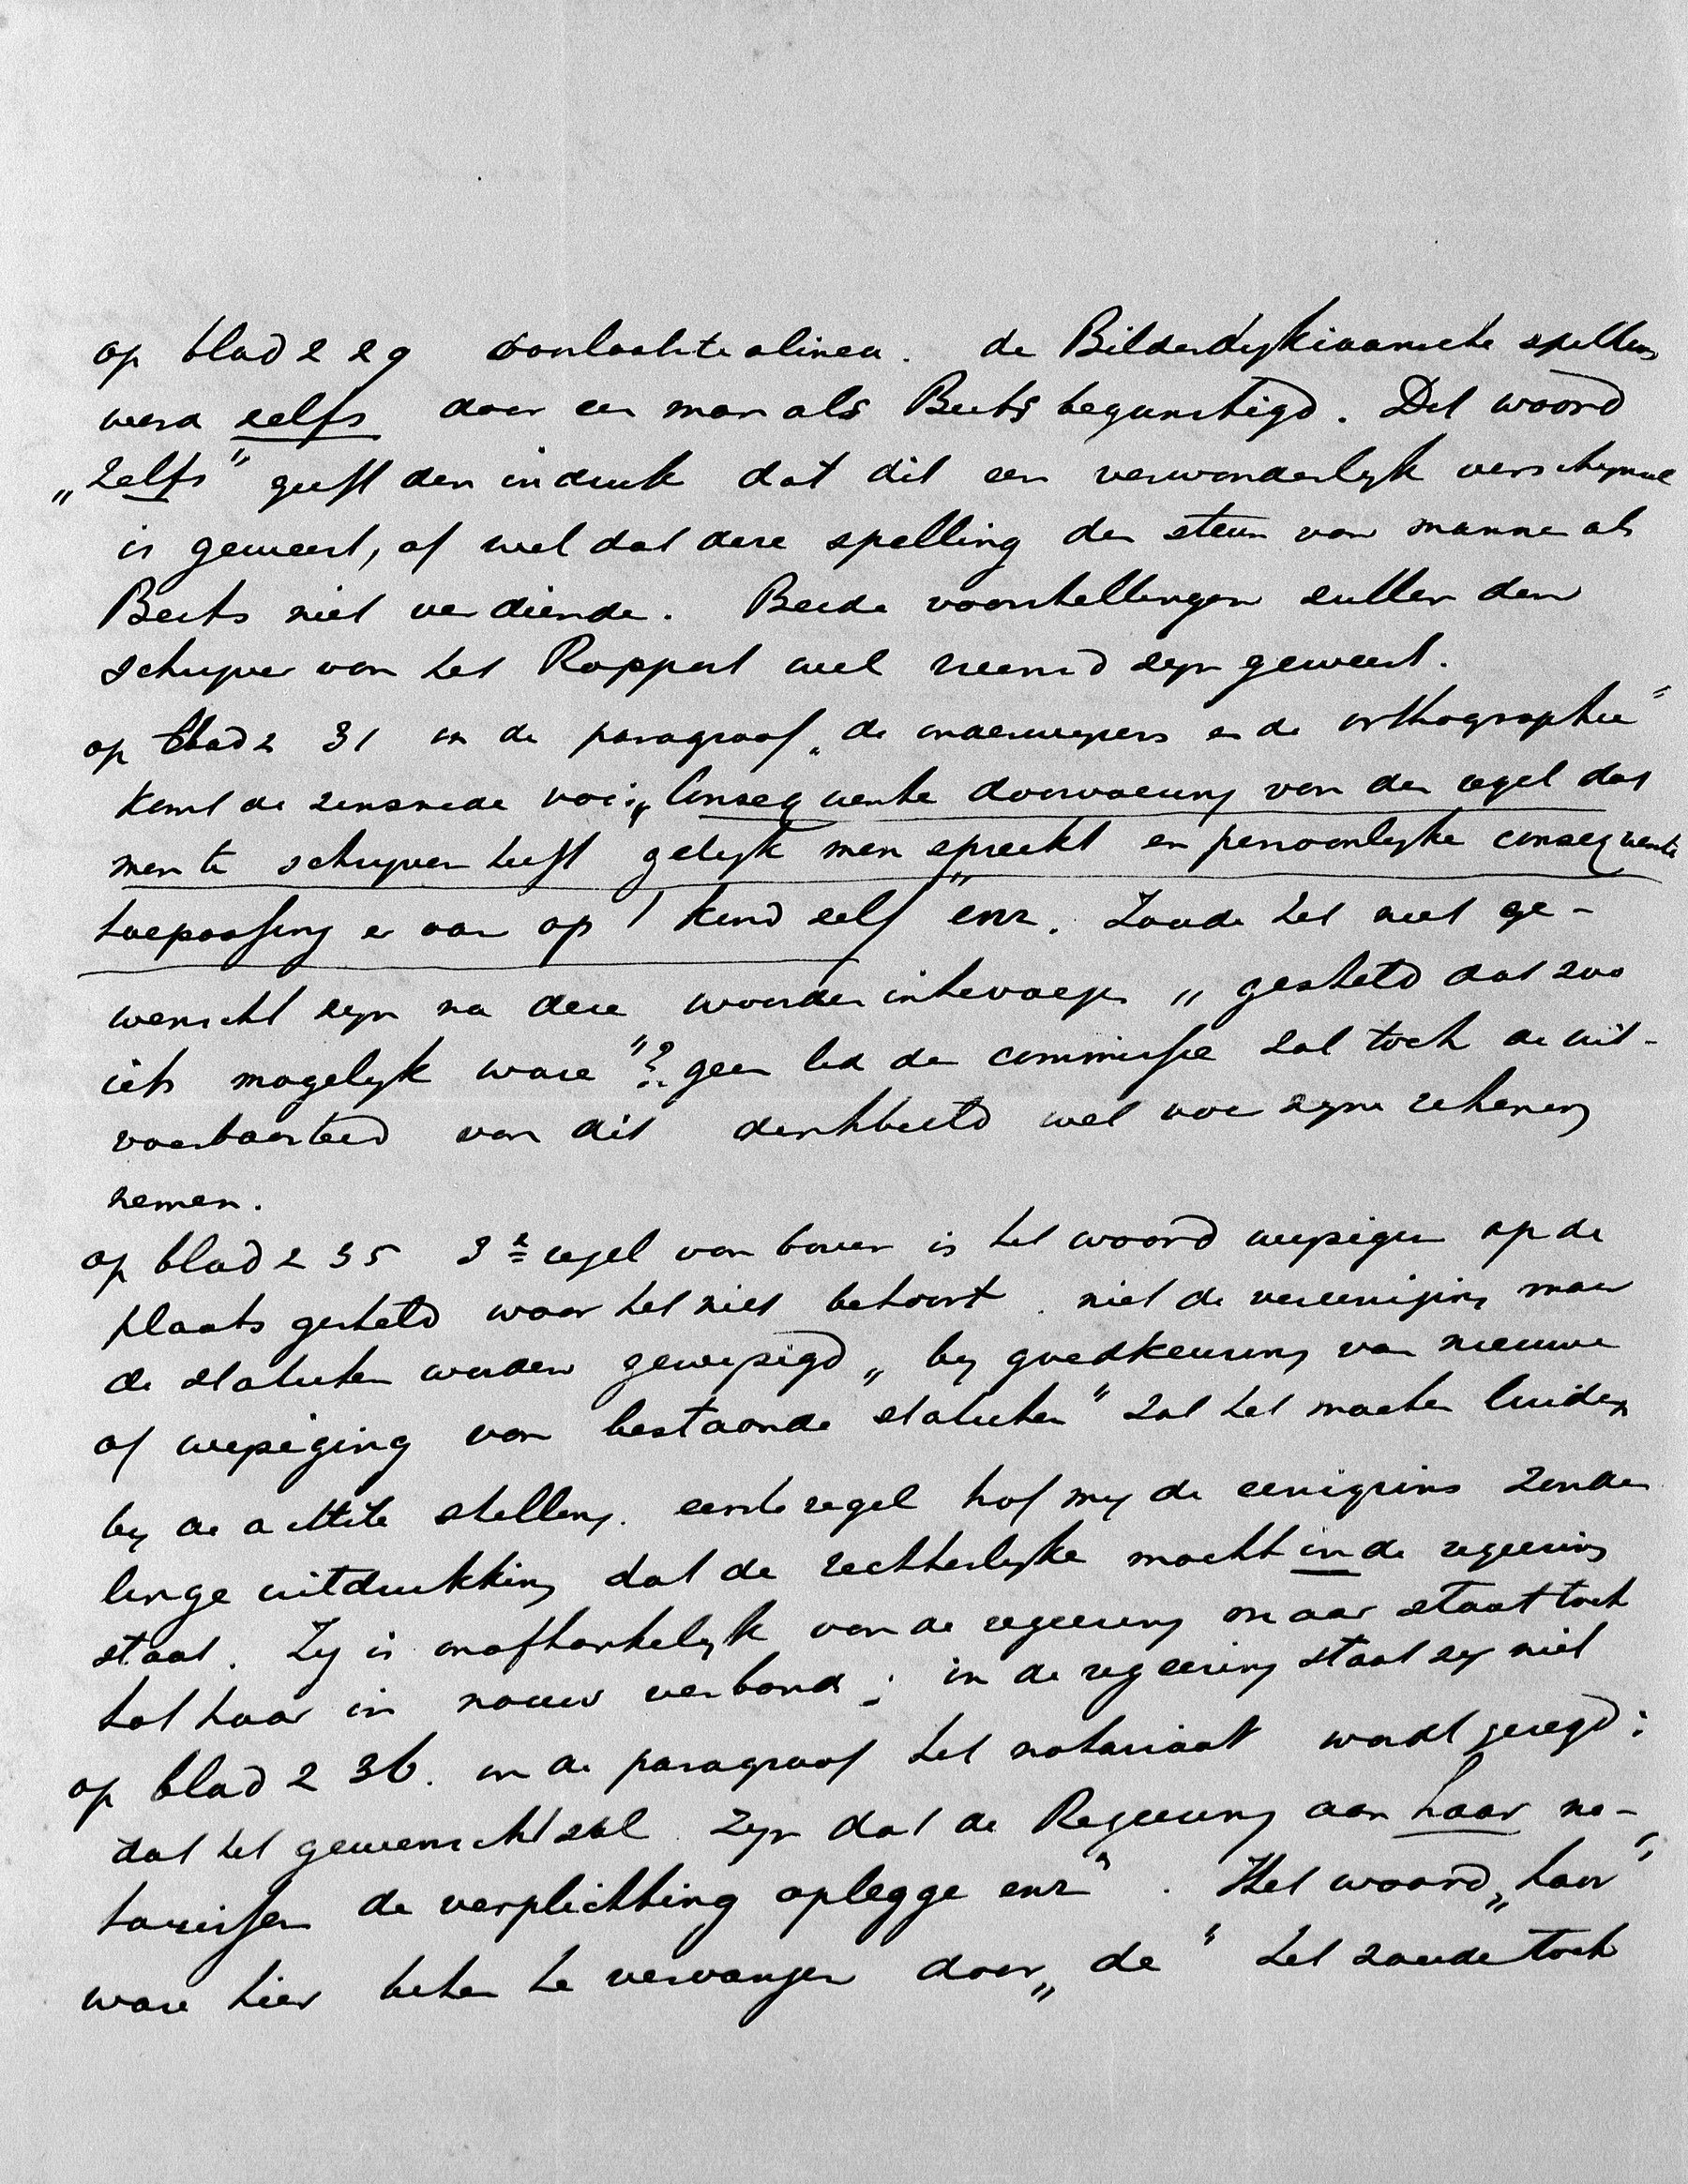 op bladz 29 voorlaatste alinea. de Bilderdykiaansche spelling
werd zelfs door een man als Beets begunstigd. Dit woord
„zelfs" geeft den indruk dat dit een verwonderlyk verschynsel
is geweest, of wel dat deze spelling den steun van mannen als
Beets niet verdiende. Beide voorstellingen zullen den
schryver van het Rapport wel vreemd zyn geweest.
op bladz 31 in de paragraaf „de onderwyzers en de orthographie"
komt de zinsnede voor: „Consequente doorvoering van den regel dat
men te schryven heeft gelyk men spreekt en persoonlyke consequente
toepassing er van op 't kind zelf" enz. Zoude het niet ge-
wenscht zyn na deze woorden intevoegen „gesteld dat zoo
iets mogelyk ware"? geen lid der commissie zal toch de uit-
voerbaarheid van dit denkbeeld wel voor zyne rekening
nemen.
op bladz 35 3e regel van boven is het woord wyzigen op de
plaats gesteld waar het niet behoort. niet de vereeniging maar
de statuten worden gewyzigd „by goedkeuring van nieuwe
of wyziging van bestaande statuten" zal het moeten luiden
by de achtste stelling. eerste regel trof my de eenigzins zonder
linge uitdrukking dat de rechterlyke macht in de regeering
staat. Zy is onafhankelyk van de regeering maar staat toch
tot haar in nauw verband; in de regeering staat zy niet
op bladz 36. in de paragraaf het notariaat wordt gezegd:
dat het gewenscht zal zyn dat de Regeering aan haar no-
tarissen de verplichting oplegge enz". Het woord „haar"
ware hier beter te vervangen door „de" het zoude toch